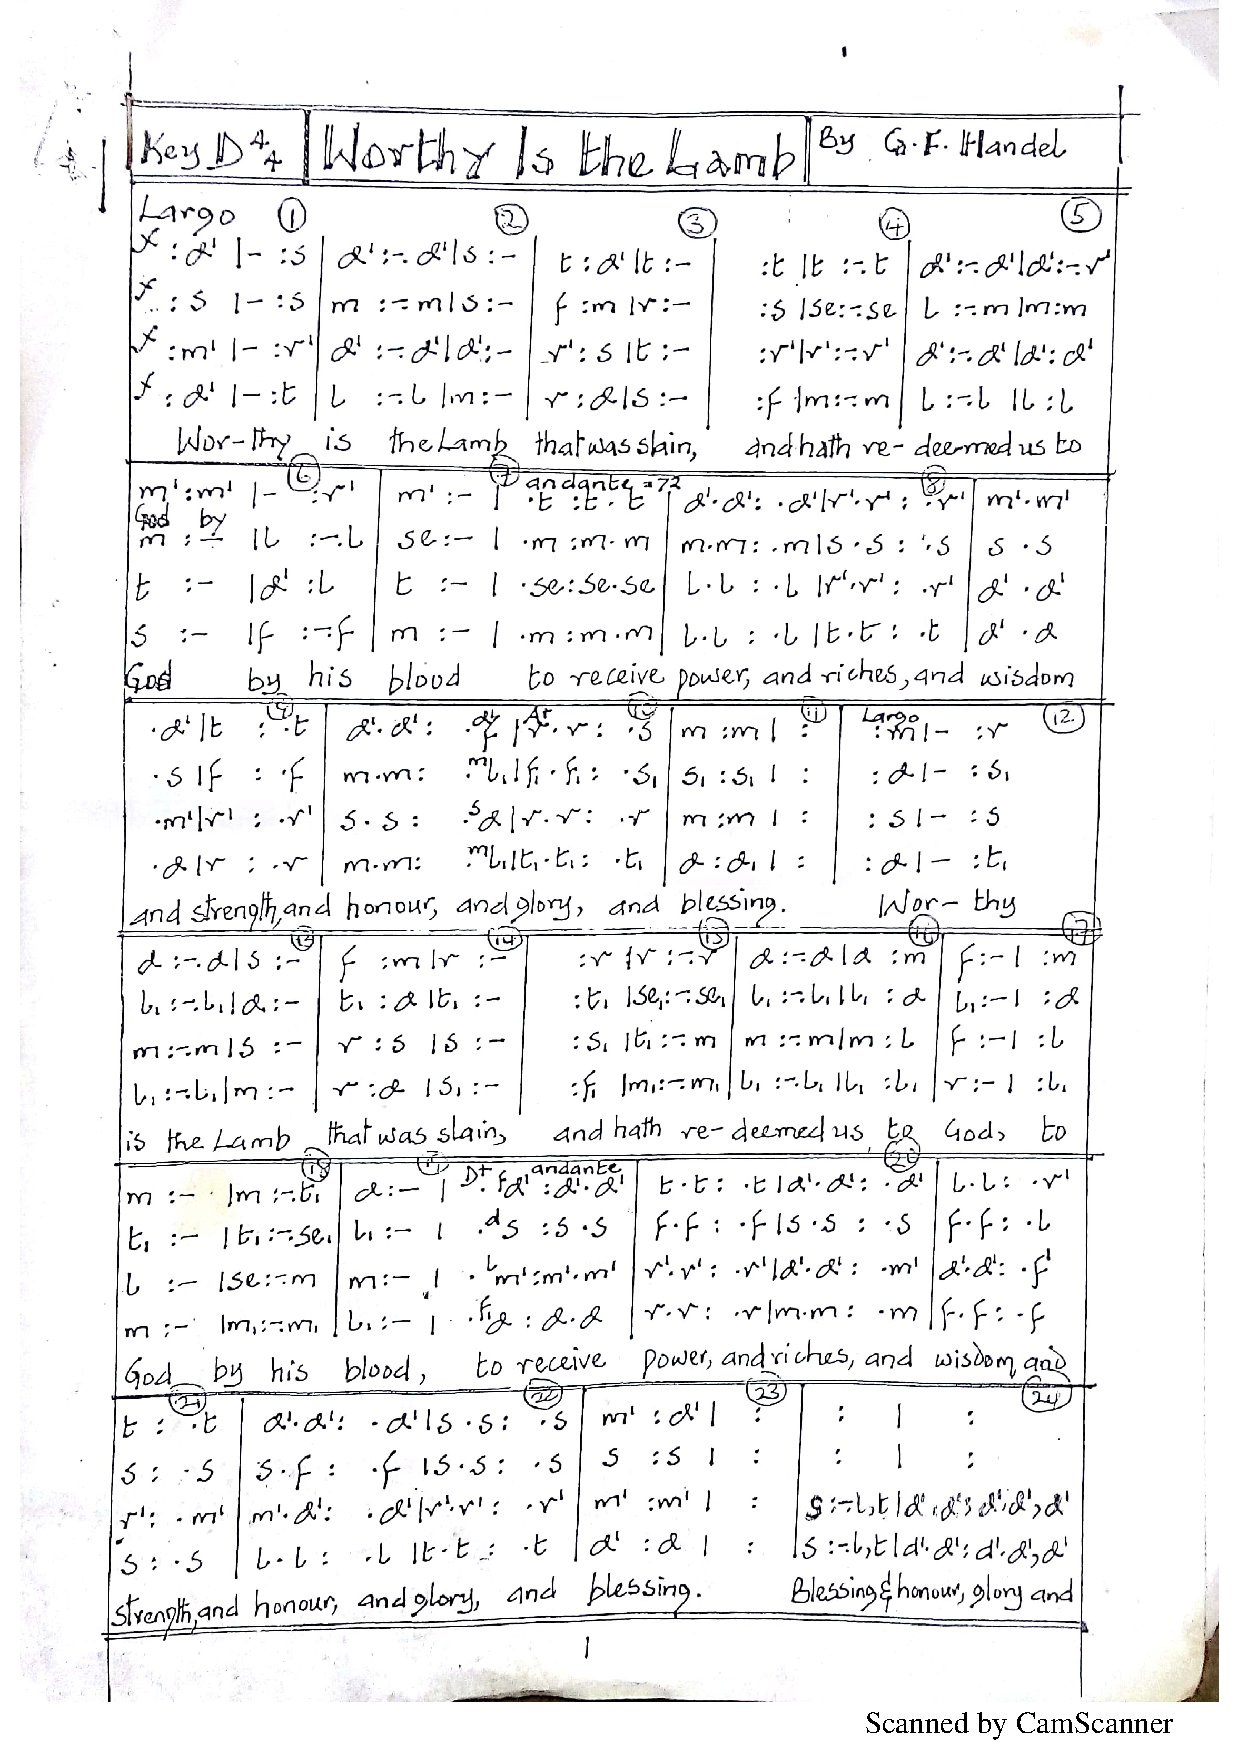 Key D 4/4 Worthy Is the Lamb By G.F. Handel
Largo 1 2 3 4 5
f :d' |- :s | d' :-.d'|s :- | t :d'|t :- | :t |t :-.t | d' :-.d'|d' :-.r'
f :s |- :s | m :-.m|s :- | f :m|r :- | :s |se:-.se | l :-.m|m:m
f :m' |- :r' | d' :-.d'|d' :- | r' :s |t :- | :r'|r' :-.r' | d' :-.d'|d' :d'
f :d' |- :t | l :-.l |m :- | r :d|s :- | :f |m:-.m | l :-.l |l :l
Wor-thy is the Lamb that was slain, and hath re-deemed us to
6 7 andante = 72 8
m' :m' |- :r' | m' :- | .t :t.t | d'.d' : .d'|r'.r' : .r' | m'.m'
God by
m :- |l :-.l | se :- | .m :m.m | m.m : .m|s.s : .s | s.s
t :- |d' :l | t :- | .se:se.se | l.l : .l |r'.r' : .r' | d'.d'
s :- |f :-.f | m :- | .m :m.m | l.l : .l |t.t : .t | d'.d
God by his blood to receive power, and riches, and wisdom
9 10 11 Largo 12
.d'|t : .t | d'.d' : .d'f |r.r : .s | m :m | : | :m |- :r
.s |f : .f | m.m : .ml₁|f₁.f₁ : .s₁ | s₁ :s₁ | : | :d |- :s₁
.m'|r' : .r' | s.s : .sd |r.r : .r | m :m | : | :s |- :s
.d |r : .r | m.m : .ml₁|t₁.t₁ : .t₁ | d :d₁ | : | :d |- :t₁
and strength, and honour, and glory, and blessing. Wor-thy
13 14 15 16 17
d :-.d|s :- | f :m|r :- | :r |r :-.r | d :-.d|d :m | f :- | :m
l₁ :-.l₁|d :- | t₁ :d|t₁ :- | :t₁ |se₁:-.se₁ | l₁ :-.l₁|l₁ :d | l₁ :- | :d
m :-.m|s :- | r :s |s :- | :s₁ |t₁ :-.m | m :-.m|m :l | f :- | :l
l₁ :-.l₁|m :- | r :d |s₁ :- | :f₁ |m₁:-.m₁ | l₁ :-.l₁|l₁ :l₁ | r :- | :l₁
is the Lamb that was slain, and hath re-deemed us to God, to
18 19 D andante 20
m :- |m :-.t₁ | d :- | .fd' :d'.d' | t.t : .t|d'.d' : .d' | l.l : .r'
t₁ :- |t₁ :-.se₁ | l₁ :- | .ds :s.s | f.f : .f |s.s : .s | f.f : .l
l :- |se :-.m | m :- | .lm' :m'.m' | r'.r' : .r'|d'.d' : .m' | d'.d' : .f'
m :- |m₁ :-.m₁ | l₁ :- | .f₁d :d.d | r.r : .r|m.m : .m | f.f : .f
God by his blood, to receive power, and riches, and wisdom, and
21 22 23 24
t : .t | d'.d' : .d'|s.s : .s | m' :d' | : | : | :
s : .s | s.f : .f |s.s : .s | s :s | : | : | :
r' : .m' | m'.d' : .d'|r'.r' : .r' | m' :m' | : | s :-.l,t|d'.d' :d'.d',d'
s : .s | l.l : .l |t.t : .t | d' :d | : | s :-.l,t|d'.d' :d'.d',d'
strength, and honour, and glory, and blessing. Blessing & honour, glory and
1
Scanned by CamScanner